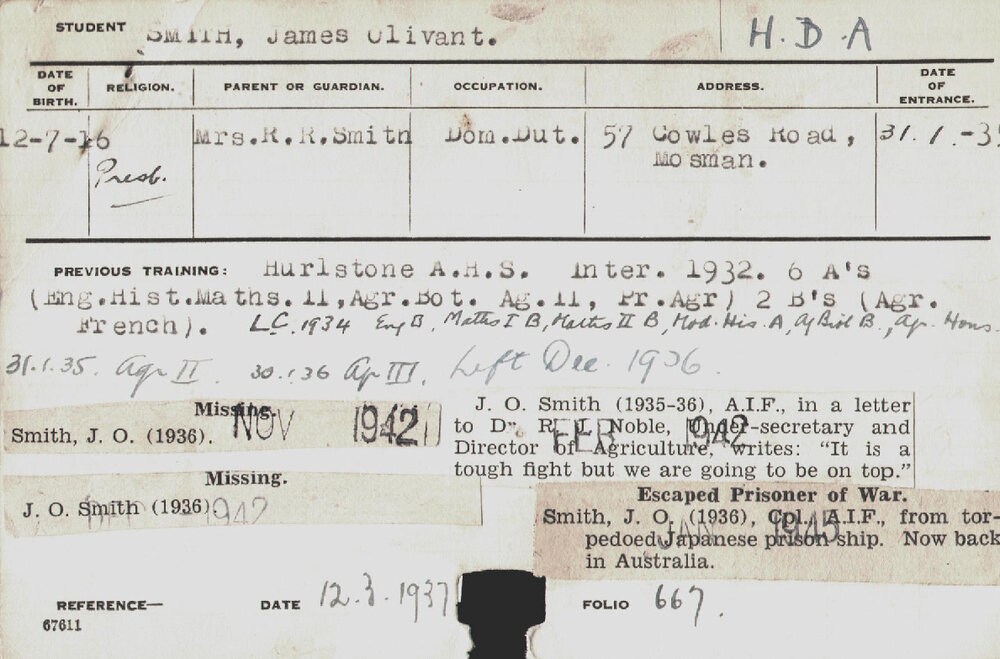 STUDENT SMITH, James Olivant. H.D.A
DATE OF BIRTH. RELIGION. PARENT OR GUARDIAN. OCCUPATION. ADDRESS. DATE OF ENTRANCE.
12-7-16 Presb. Mrs.R.R.Smith Dom.Dut. 57 Cowles Road, 31.1.-3
Mosman.
PREVIOUS TRAINING: Hurlstone A.H.S. Inter. 1932. 6 A's
(Eng.Hist.Maths.II,Agr.Bot. Ag.II, Pr.Agr) 2 B's (Agr.
French). L.C. 1934 Eng B, Maths I B, Maths II B, Mod. His. A, Ag Biol B., Agr. Hons.
31.1.35. Agr II. 30.1.36 Ag III. Left Dec. 1936.
Missing.
Smith, J. O. (1936). NOV 1942
Missing.
J. O. Smith (1936) 1942
J. O. Smith (1935-36), A.I.F., in a letter
to Dr. R. J. Noble, Under-secretary and
Director of Agriculture, writes: "It is a
tough fight but we are going to be on top."
FEB 1942
Escaped Prisoner of War.
Smith, J. O. (1936), Cpl., A.I.F., from tor-
pedoed Japanese prison ship. Now back
in Australia.
JAN 1945
REFERENCE— DATE 12.3.1937 FOLIO 667.
67611